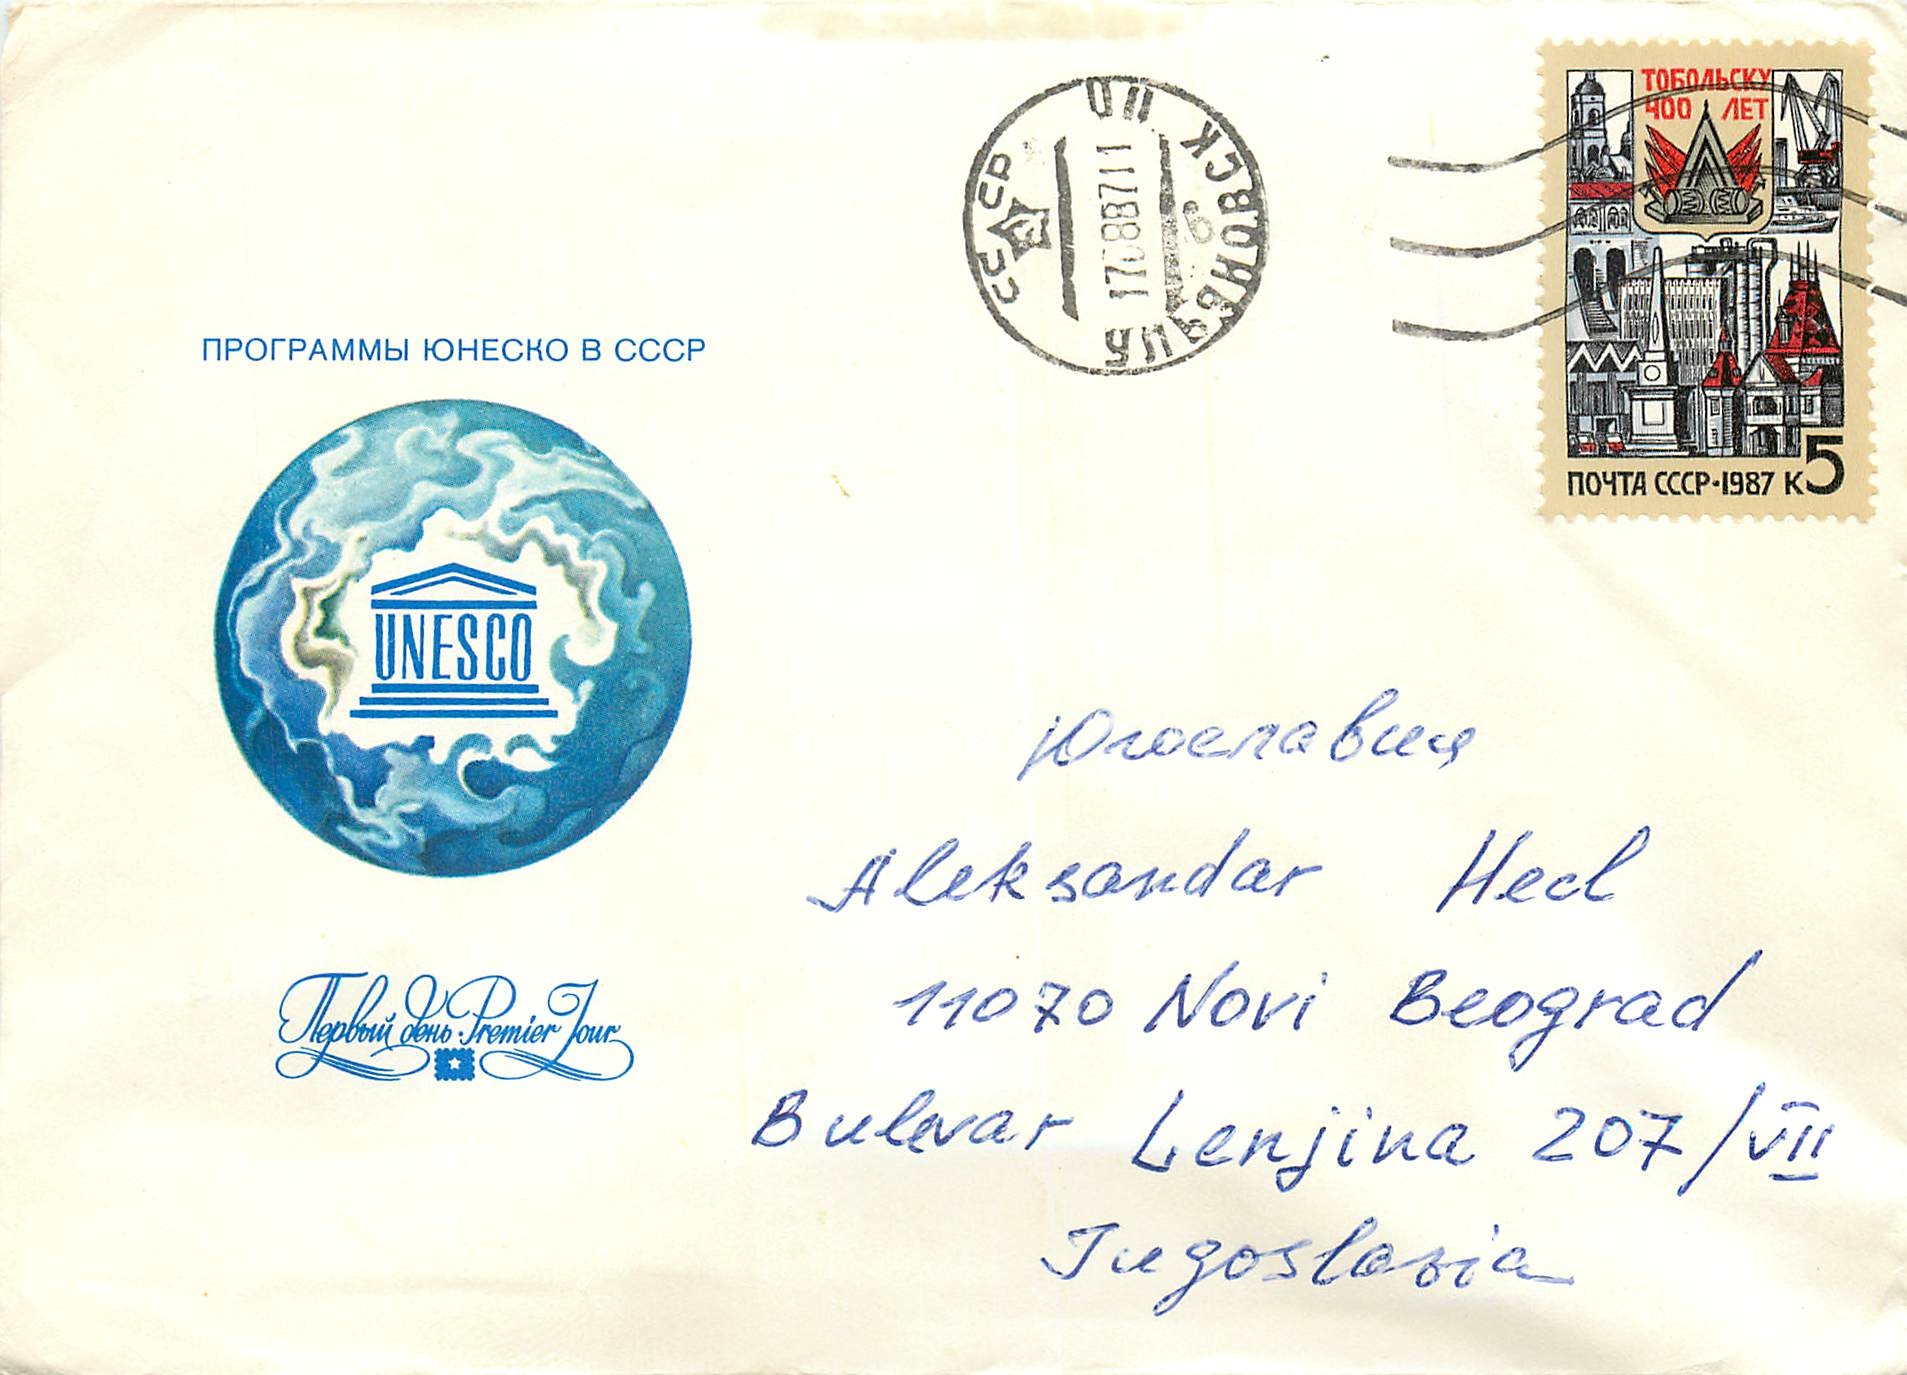 ТОБОЛЬСКУ
400 ЛЕТ
ПОЧТА СССР·1987 К5
СССР
УЛЬЯНОВСК
ПРОГРАММЫ ЮНЕСКО В СССР
UNESCO
Первый день·Premier Jour
Югославия
Aleksandar Hecl
11070 Novi Beograd
Bulevar Lenjina 207/VII
Jugoslavia